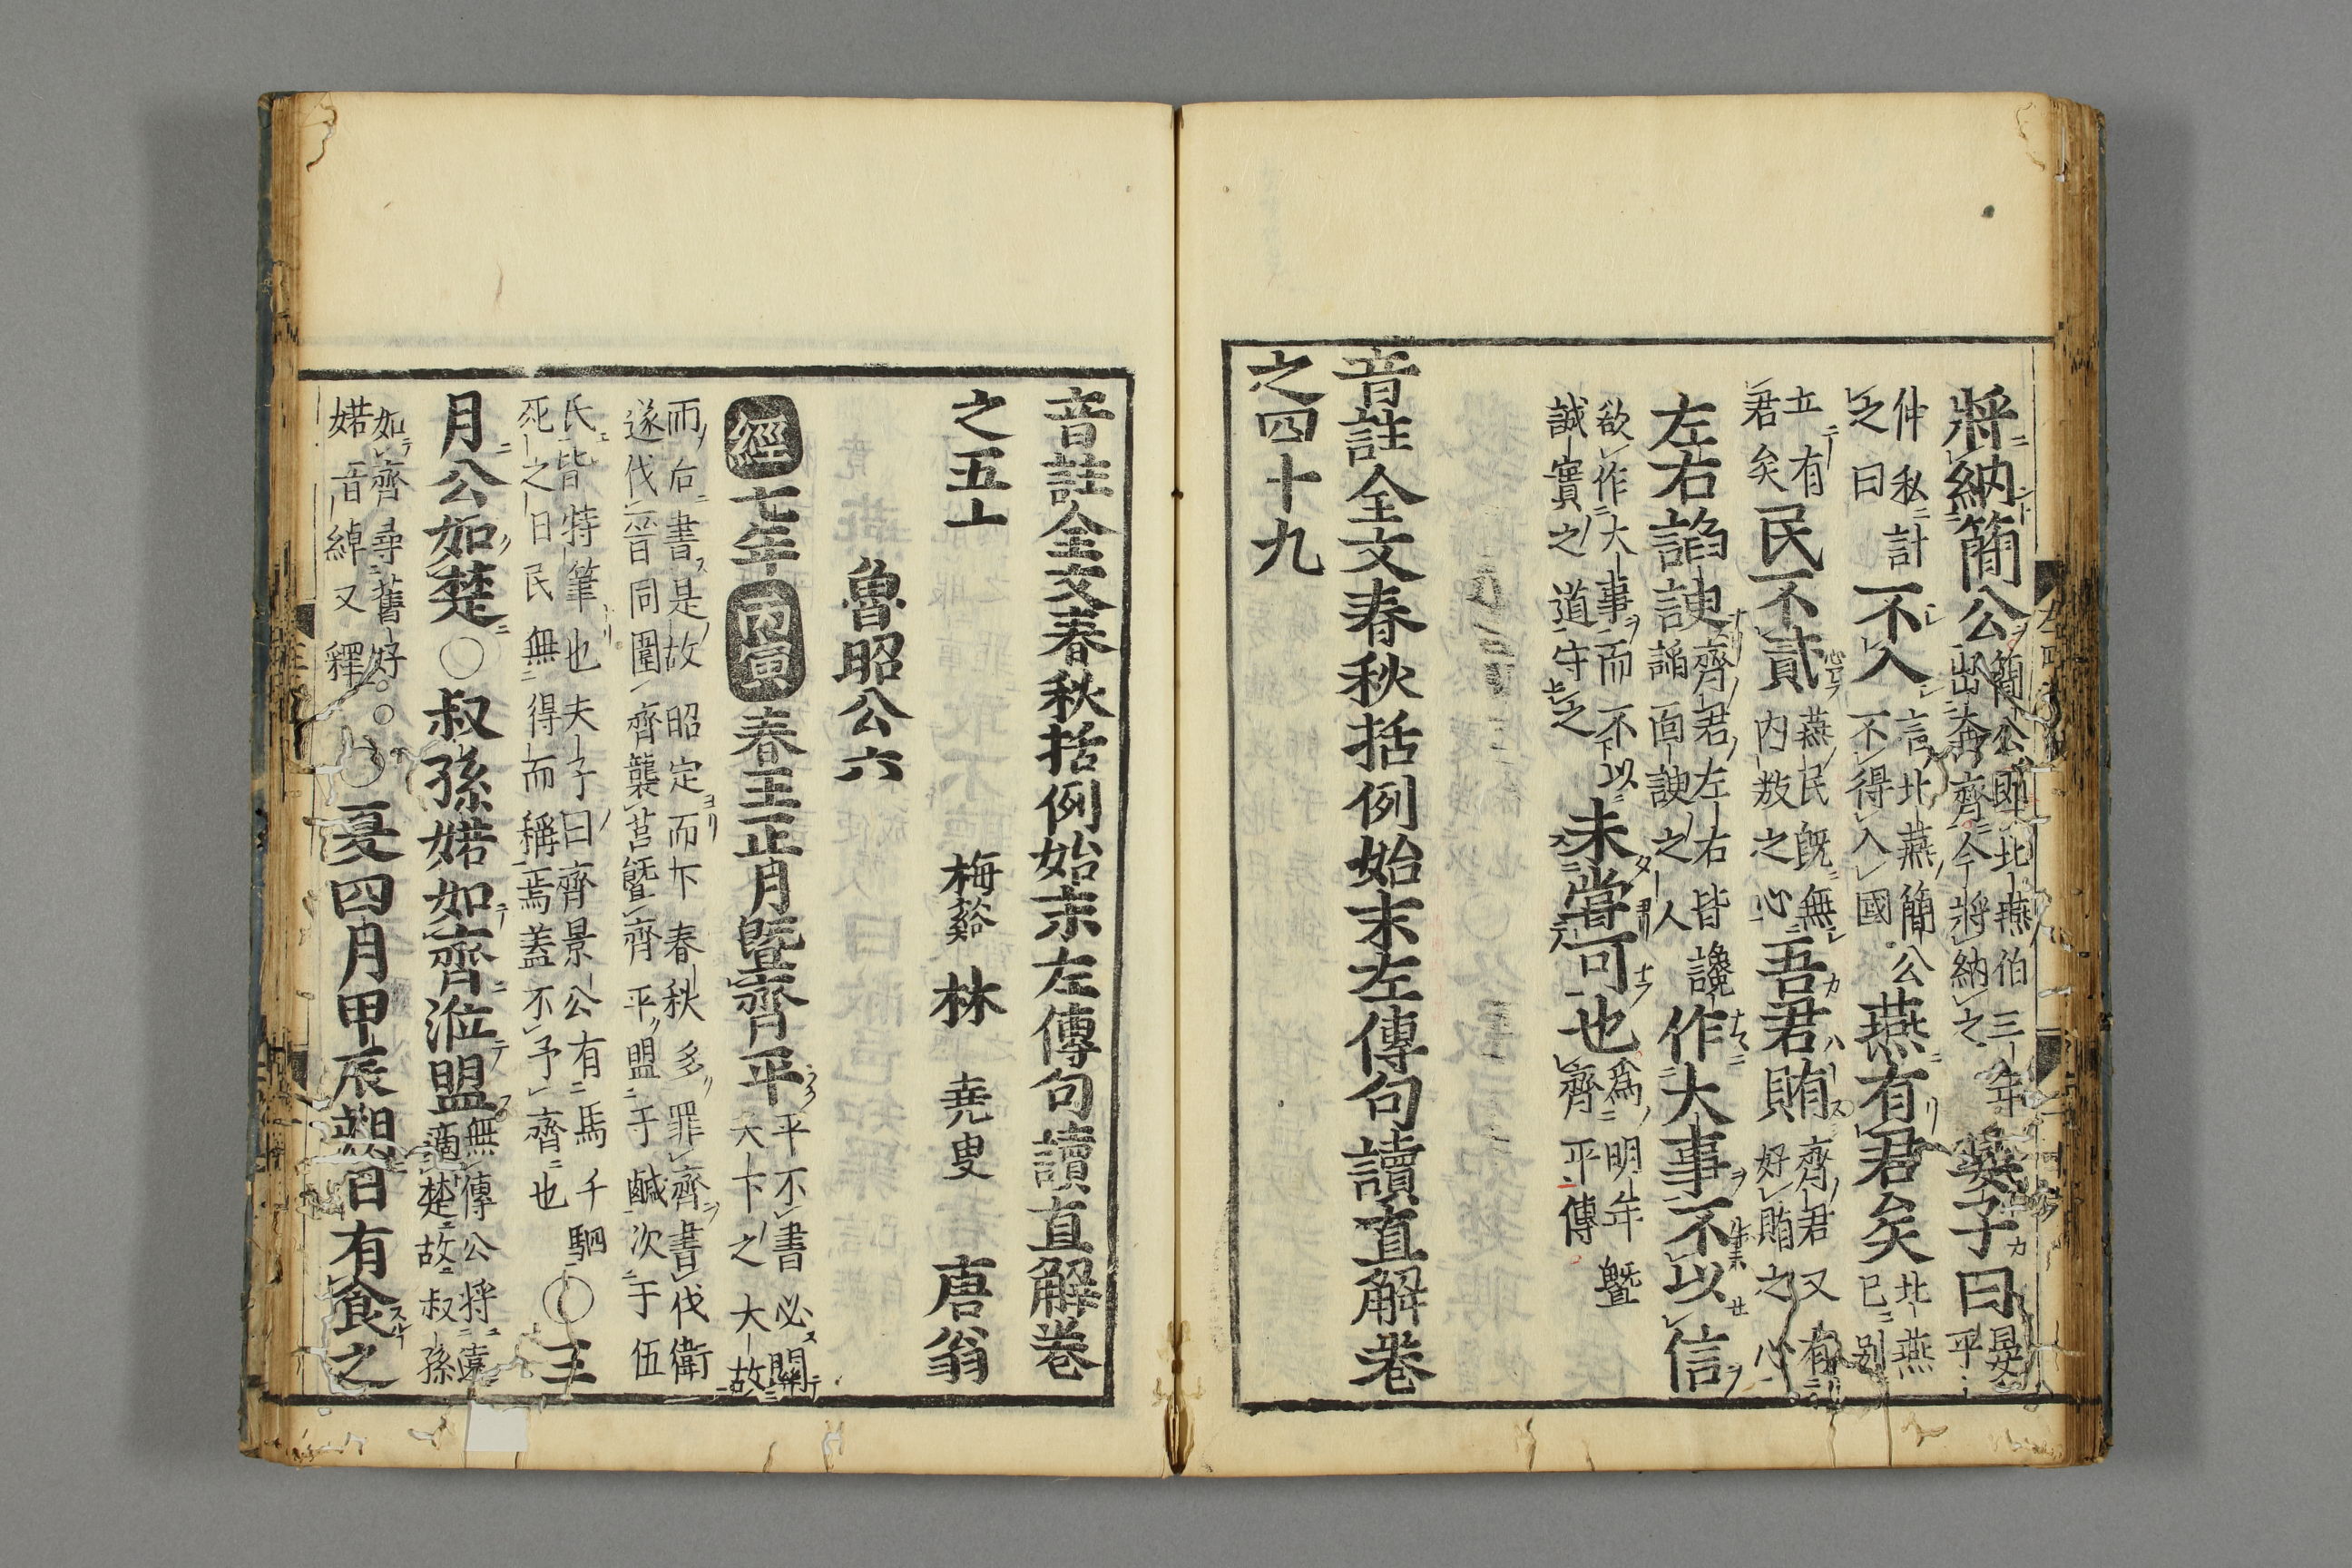 將納簡公簡公即北燕伯三年出奔齊今將納之晏子曰晏平
仲私計之曰不入言北燕簡公不得入國燕有君矣北燕已別
立有君矣民不貳燕民旣無內叛之心吾君賄齊君又有好賄之心
左右諂諛齊君左右皆讒諂面諛之人作大事不以信
欲作大事而不以誠實之道守之未嘗可也爲明年曁齊平傳
音註全文春秋括例始末左傳句讀直解卷
之四十九
音註全文春秋括例始末左傳句讀直解卷
之五十
梅谿 林 堯叟 唐翁
魯昭公六
經七年丙寅春王正月曁齊平平不書必關天下之大故
而后書是故昭定而下春秋多罪齊書伐衛遂伐晉同圍齊襲莒曁齊平盟于鹹次于伍
氏皆特筆也夫子曰齊景公有馬千駟死之日民無得而稱焉蓋不予齊也○三
月公如楚○叔孫婼如齊涖盟無傳公將遠適楚故叔孫
如齊尋舊好○婼音綽又釋○夏四月甲辰朔日有食之